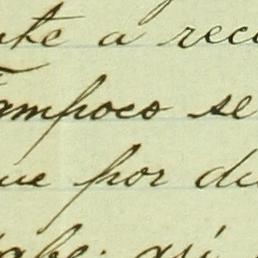 nte a recu
Tampoco se
ue por du
abe; así